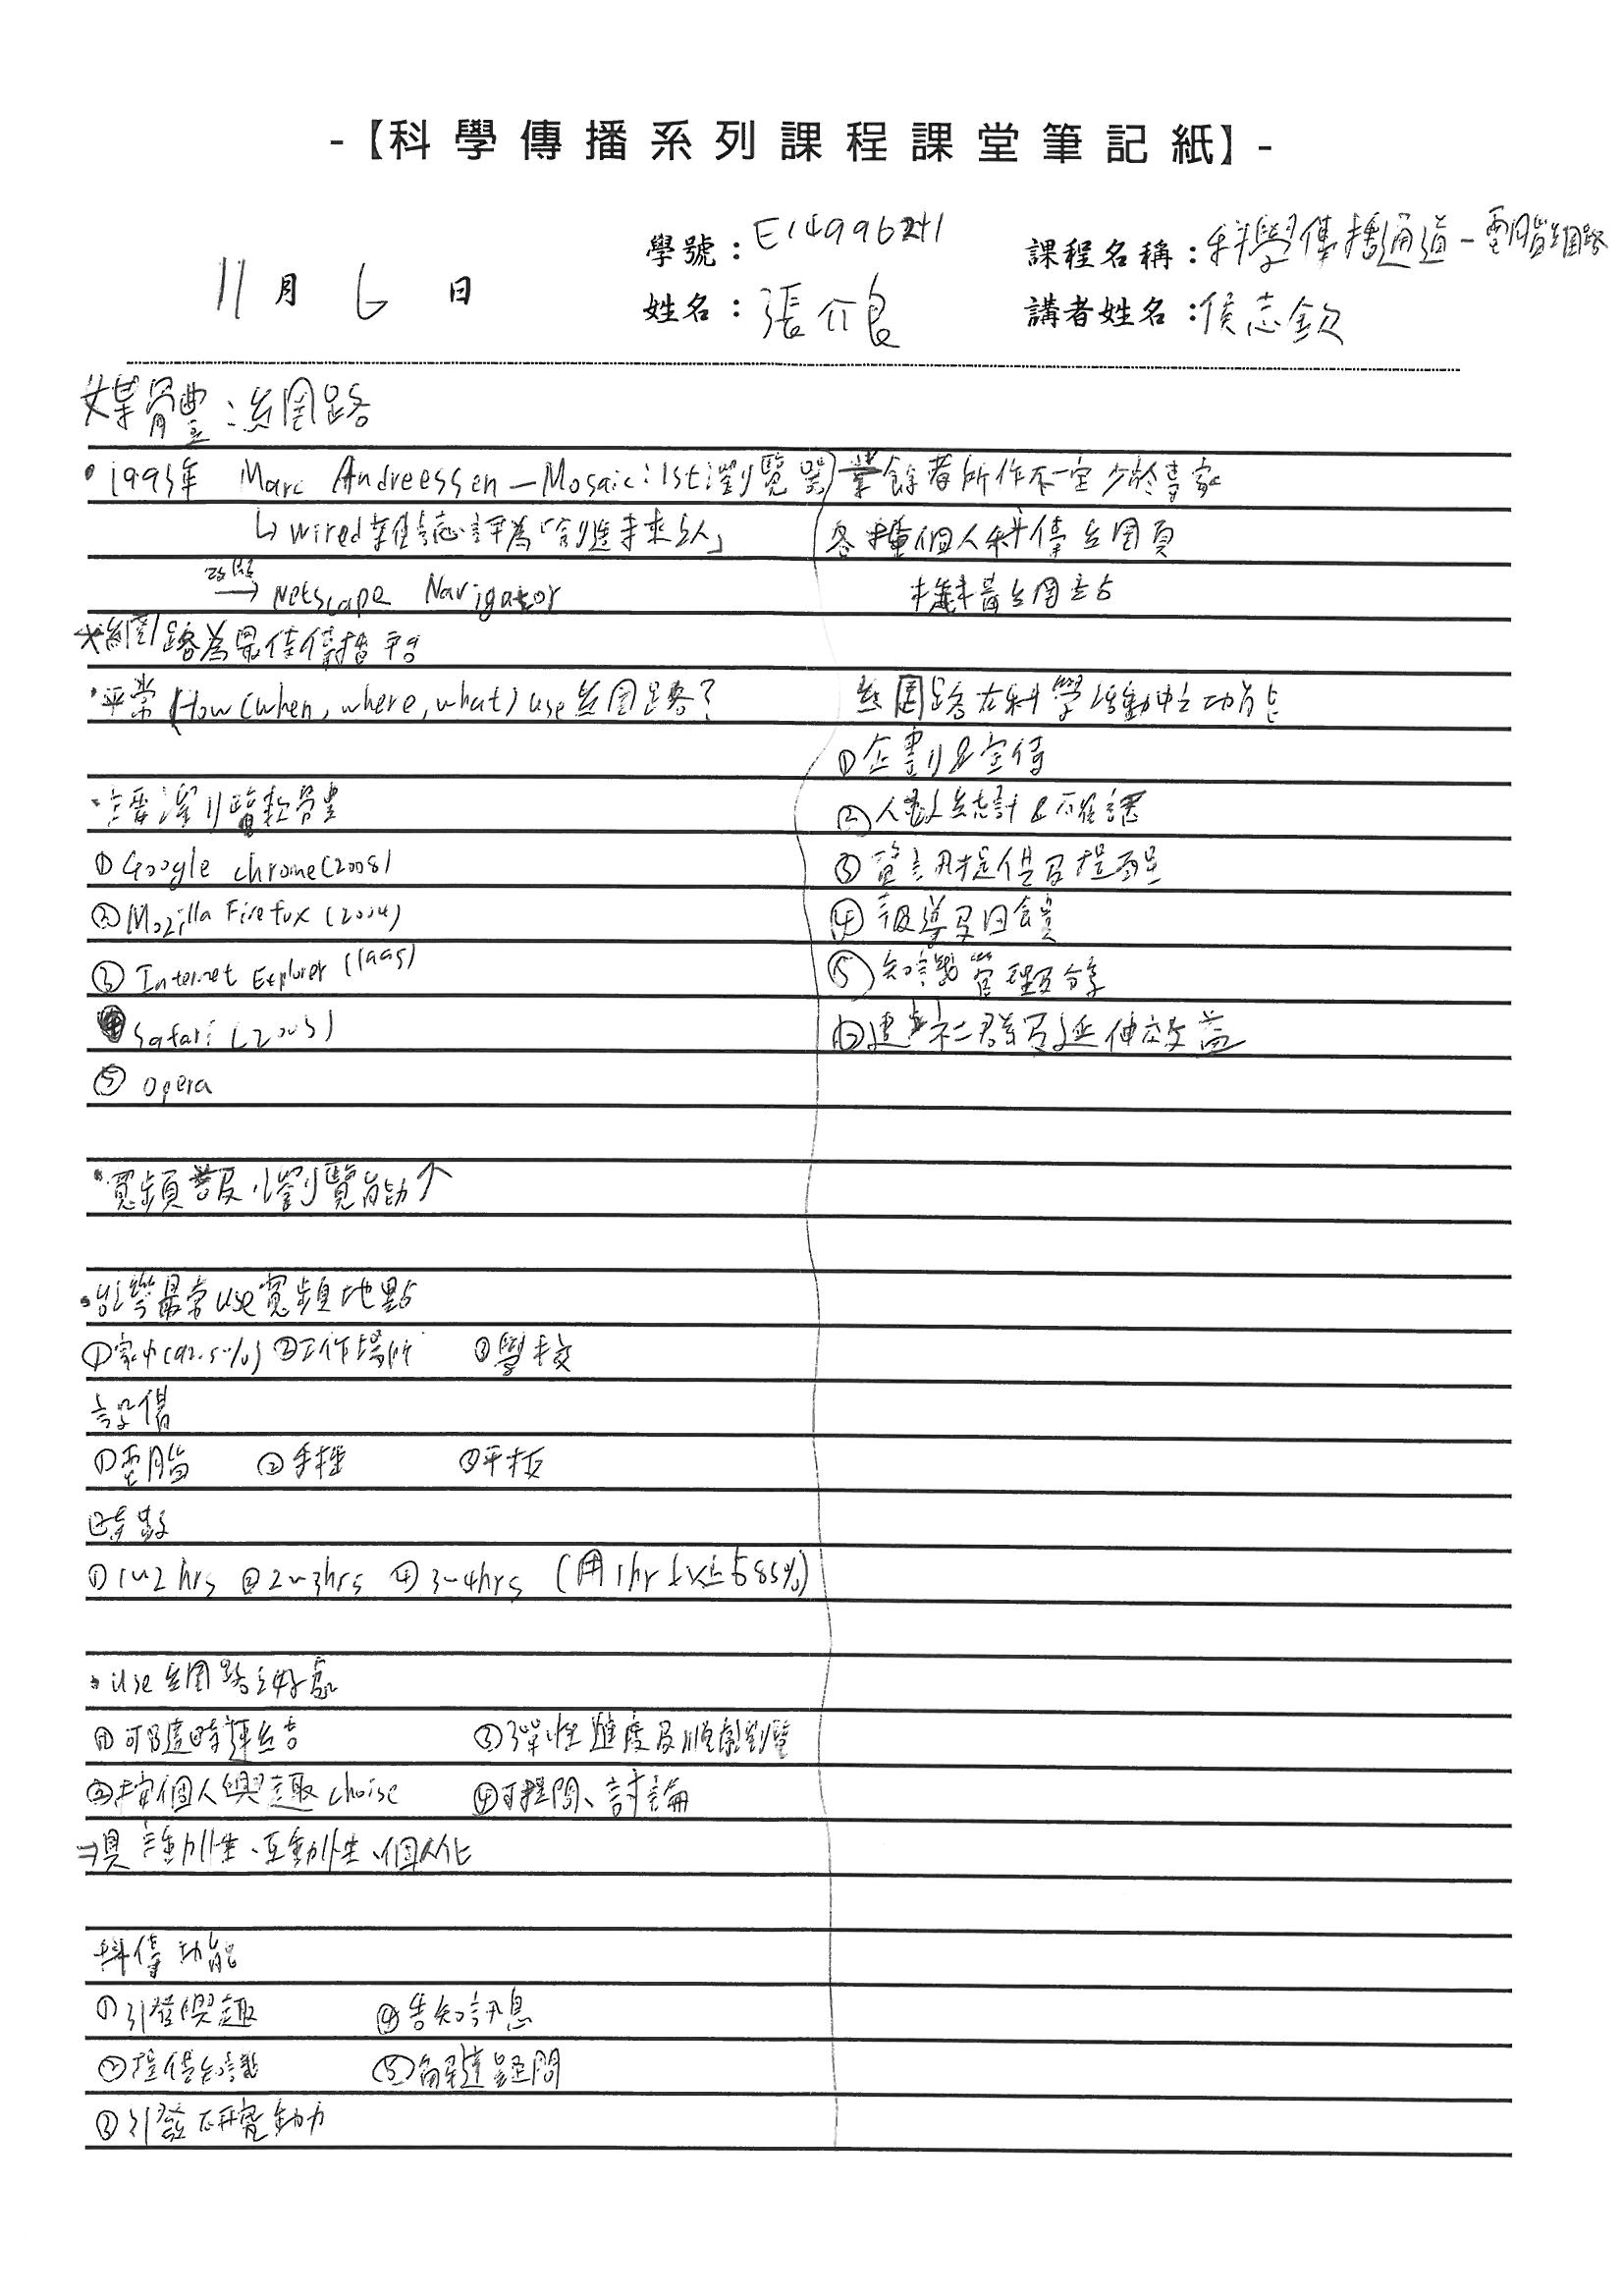 -【科學傳播系列課程課堂筆記紙】-
11月6日
學號：E14996241
姓名：張介良
課程名稱：科學傳播通道-電腦網路
講者姓名：侯志欽
媒體：網路
•1993年 Marc Andreessen—Mosaic：1st瀏覽器
↳Wired雜誌評為「創造未來的人」
改良→Netscape Navigator
*網路為最佳傳播平台
•平常How(when, where, what) use網路?
•主要瀏覽軟體
①Google chrome(2008)
②Mozilla Firefox (2004)
③Internet Explorer (1995)
④Safari (2003)
⑤opera
•寬頻普及，瀏覽能力↑
•台灣最常use寬頻地點
①家中(92.5%) ②工作場所 ③學校
設備
①電腦 ②手機 ③平板
時數
①1~2 hrs ②2~3hrs ④3~4hrs (用1hr以上占85%)
•Use網路之好處
①可隨時連結 ③彈性進度及順序瀏覽
②按個人興趣choise ④可提問、討論
⇒具主動性、互動性、個人化
科傳功能
①引發興趣 ④告知訊息
②提供知識 ⑤解答疑問
③引發研究動力
業餘者所作不一定少於專家
各種個人科傳網頁
科普網站
網路在科學活動中之功能
①企劃&宣傳
②人數統計&確認
③資訊提供及提醒
④報導及回饋
⑤知識管理及分享
⑥建立社群及延伸效益